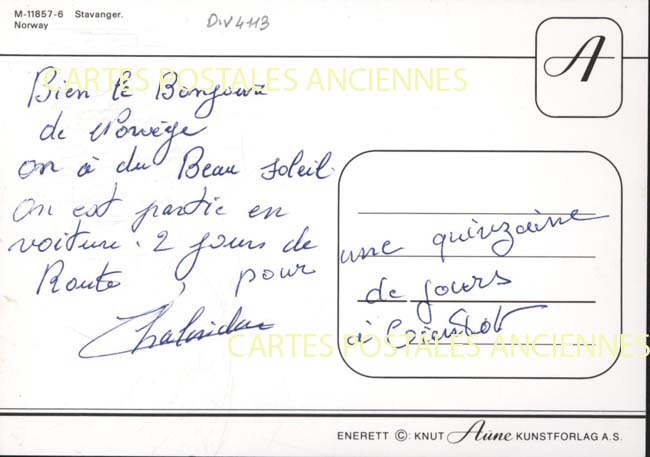 M-11857-6 Stavanger.
Norway
Div 4113
A
CARTES POSTALES ANCIENNES
Bien le Bonjour
de Norvège
on à du Beau soleil
on est partie en
voiture. 2 jours de
Route, pour
une quinzaine
de jours
à
CARTES POSTALES ANCIENNES
ENERETT ©: KNUT Aüne KUNSTFORLAG A.S.